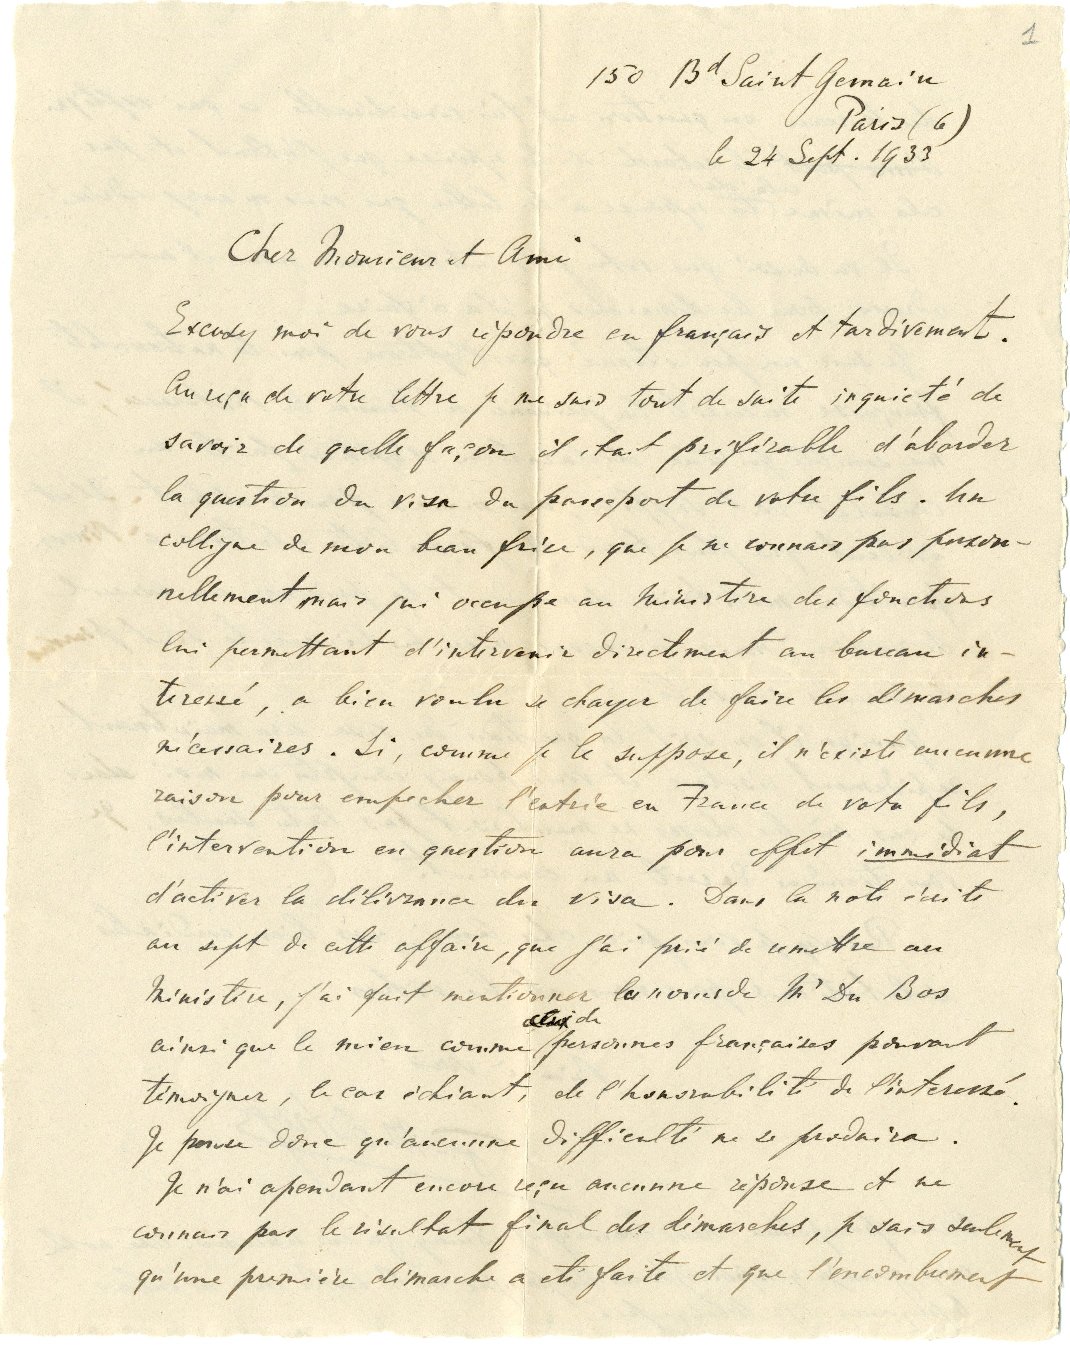 1
150 Bd Saint Germain
Paris (6)
le 24 Sept. 1933
Cher Monsieur et Ami
Excusez moi de vous répondre en français et tardivement.
Au reçu de votre lettre je me suis tout de suite inquieté de
savoir de quelle façon il était préférable d'aborder
la question du visa du passeport de votre fils. Un
collègue de mon beau frère, que je ne connais pas person-
nellement mais qui occupe au Ministère des fonctions
lui permettant d'intervenir directement au bureau in-
teressé, a bien voulu se charger de faire les démarches
nécessaires. Si, comme je le suppose, il n'existe aucunne
raison pour empecher l'entrée en France de votre fils,
l'intervention en question aura pour effet immédiat
d'activer la délivrance du visa. Dans la note écrite
au sujet de cette affaire, que j'ai prié de remettre au
Ministère, j'ai fait mentionner les noms de Mr Du Bos
ainsi que le mien comme de personnes françaises pouvant
témoigner, le cas échéant, de l'honorabilité de l'interessé.
Je pense donc qu'aucunne difficulté ne se produira.
Je n'ai cependant encore reçu aucunne réponse et ne
connais pas le résultat final des démarches, je sais seulement
qu'une première démarche a été faite et que l'encombrement